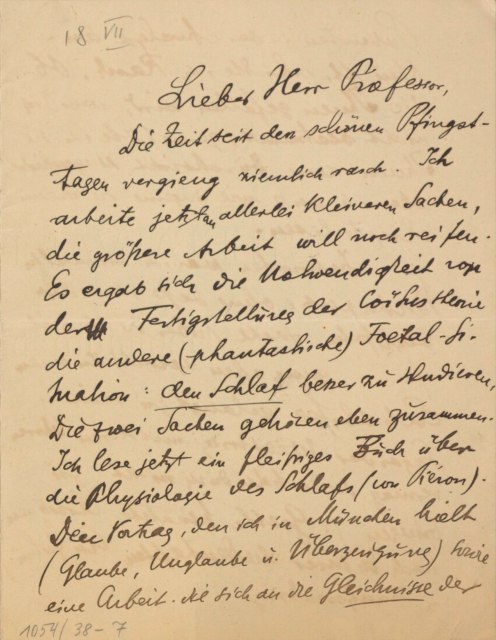 18 VII
Lieber Herr Professor,
Die Zeit seit den schönen Pfingst-
tagen vergieng ziemlich rasch. Ich
arbeite jetzt an allerlei kleineren Sachen,
die größere Arbeit will noch reifen.
Es ergab sich die Nothwendigkeit vor
der Fertigstellung der Coitustheorie
die andere (phantastische) Foetal-Si-
tuation: den Schlaf besser zu studieren,
Die zwei Sachen gehören eben zusammen.
Ich lese jetzt ein fleißiges Buch über
die Physiologie des Schlafs (von Piéron).
Den Vortrag, den ich in München hielt
(Glaube, Unglaube u. Überzeugung) sowie
eine Arbeit die sich an die Gleichnisse der
1054/38-7